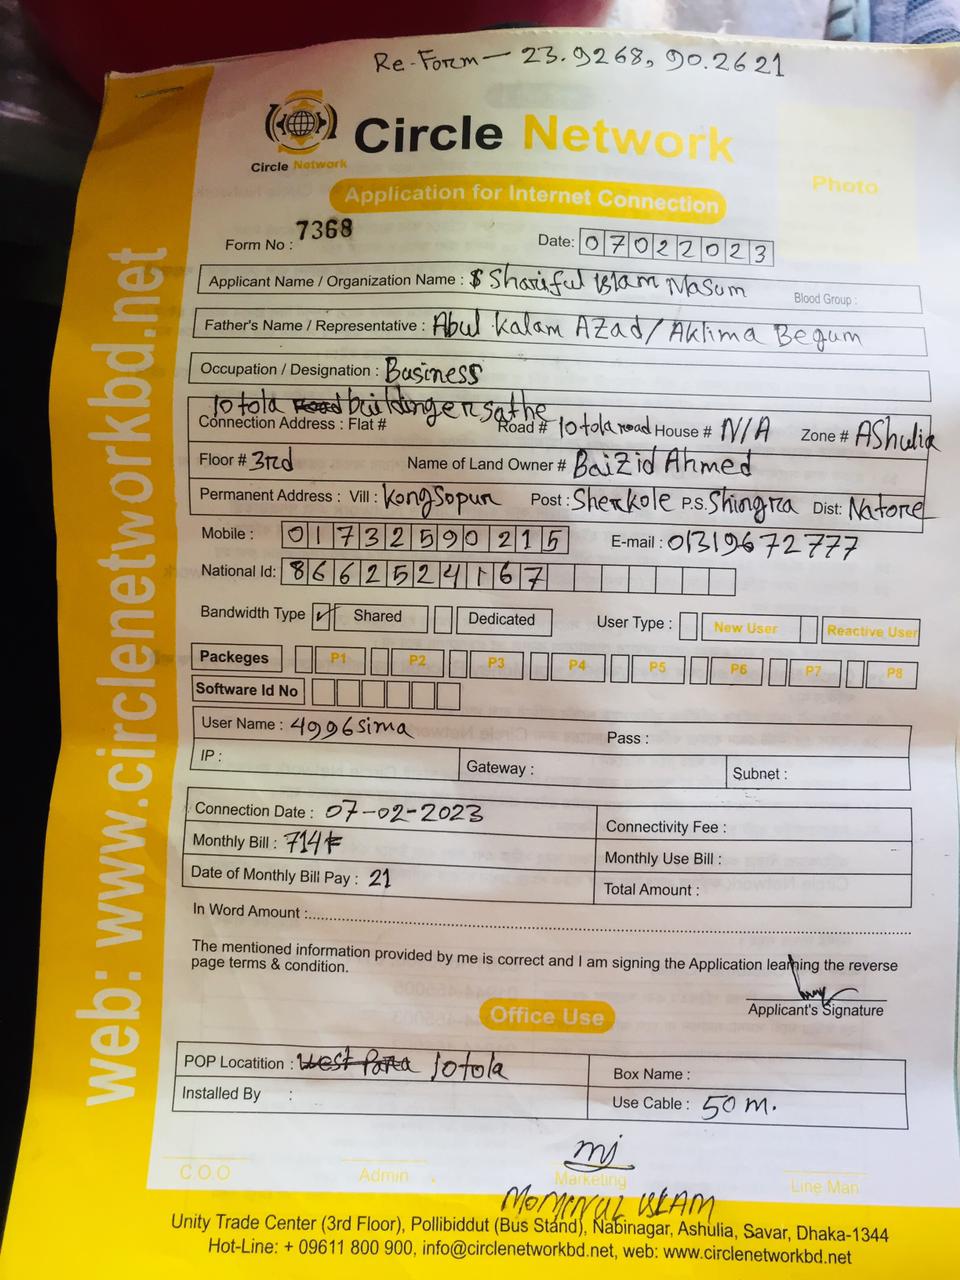 Re-Form — 23.9268, 90.2621
Circle Network
Circle Network
Photo
Application for Internet Connection
Form No : 7368
Date: 07022023
Applicant Name / Organization Name : Shariful Islam Masum Blood Group :
Father's Name / Representative : Abul Kalam Azad/Aklima Begum
Occupation / Designation : Business
10tola building er sathe
Connection Address : Flat # Road # 10tola road House # N/A Zone # AShulia
Floor # 3rd Name of Land Owner # Baizid Ahmed
Permanent Address : Vill : KongSopur Post : Sherkole P.S. Shingra Dist: Natore
Mobile : 01732590215 E-mail : 01319672777
National Id: 8662524167
Bandwidth Type Shared Dedicated User Type : New User Reactive User
Packeges P1 P2 P3 P4 P5 P6 P7 P8
Software Id No
User Name : 4996sima Pass :
IP : Gateway : Subnet :
Connection Date : 07-02-2023 Connectivity Fee :
Monthly Bill : 714৳ Monthly Use Bill :
Date of Monthly Bill Pay : 21 Total Amount :
In Word Amount :
The mentioned information provided by me is correct and I am signing the Application learning the reverse
page terms & condition.
Applicant's Signature
Office Use
POP Locatition : West Para 10tola Box Name :
Installed By : Use Cable : 50 m.
mi
C.O.O Admin Marketing Line Man
MOMENUL ISLAM
Unity Trade Center (3rd Floor), Pollibiddut (Bus Stand), Nabinagar, Ashulia, Savar, Dhaka-1344
Hot-Line: + 09611 800 900, info@circlenetworkbd.net, web: www.circlenetworkbd.net
web: www.circlenetworkbd.net